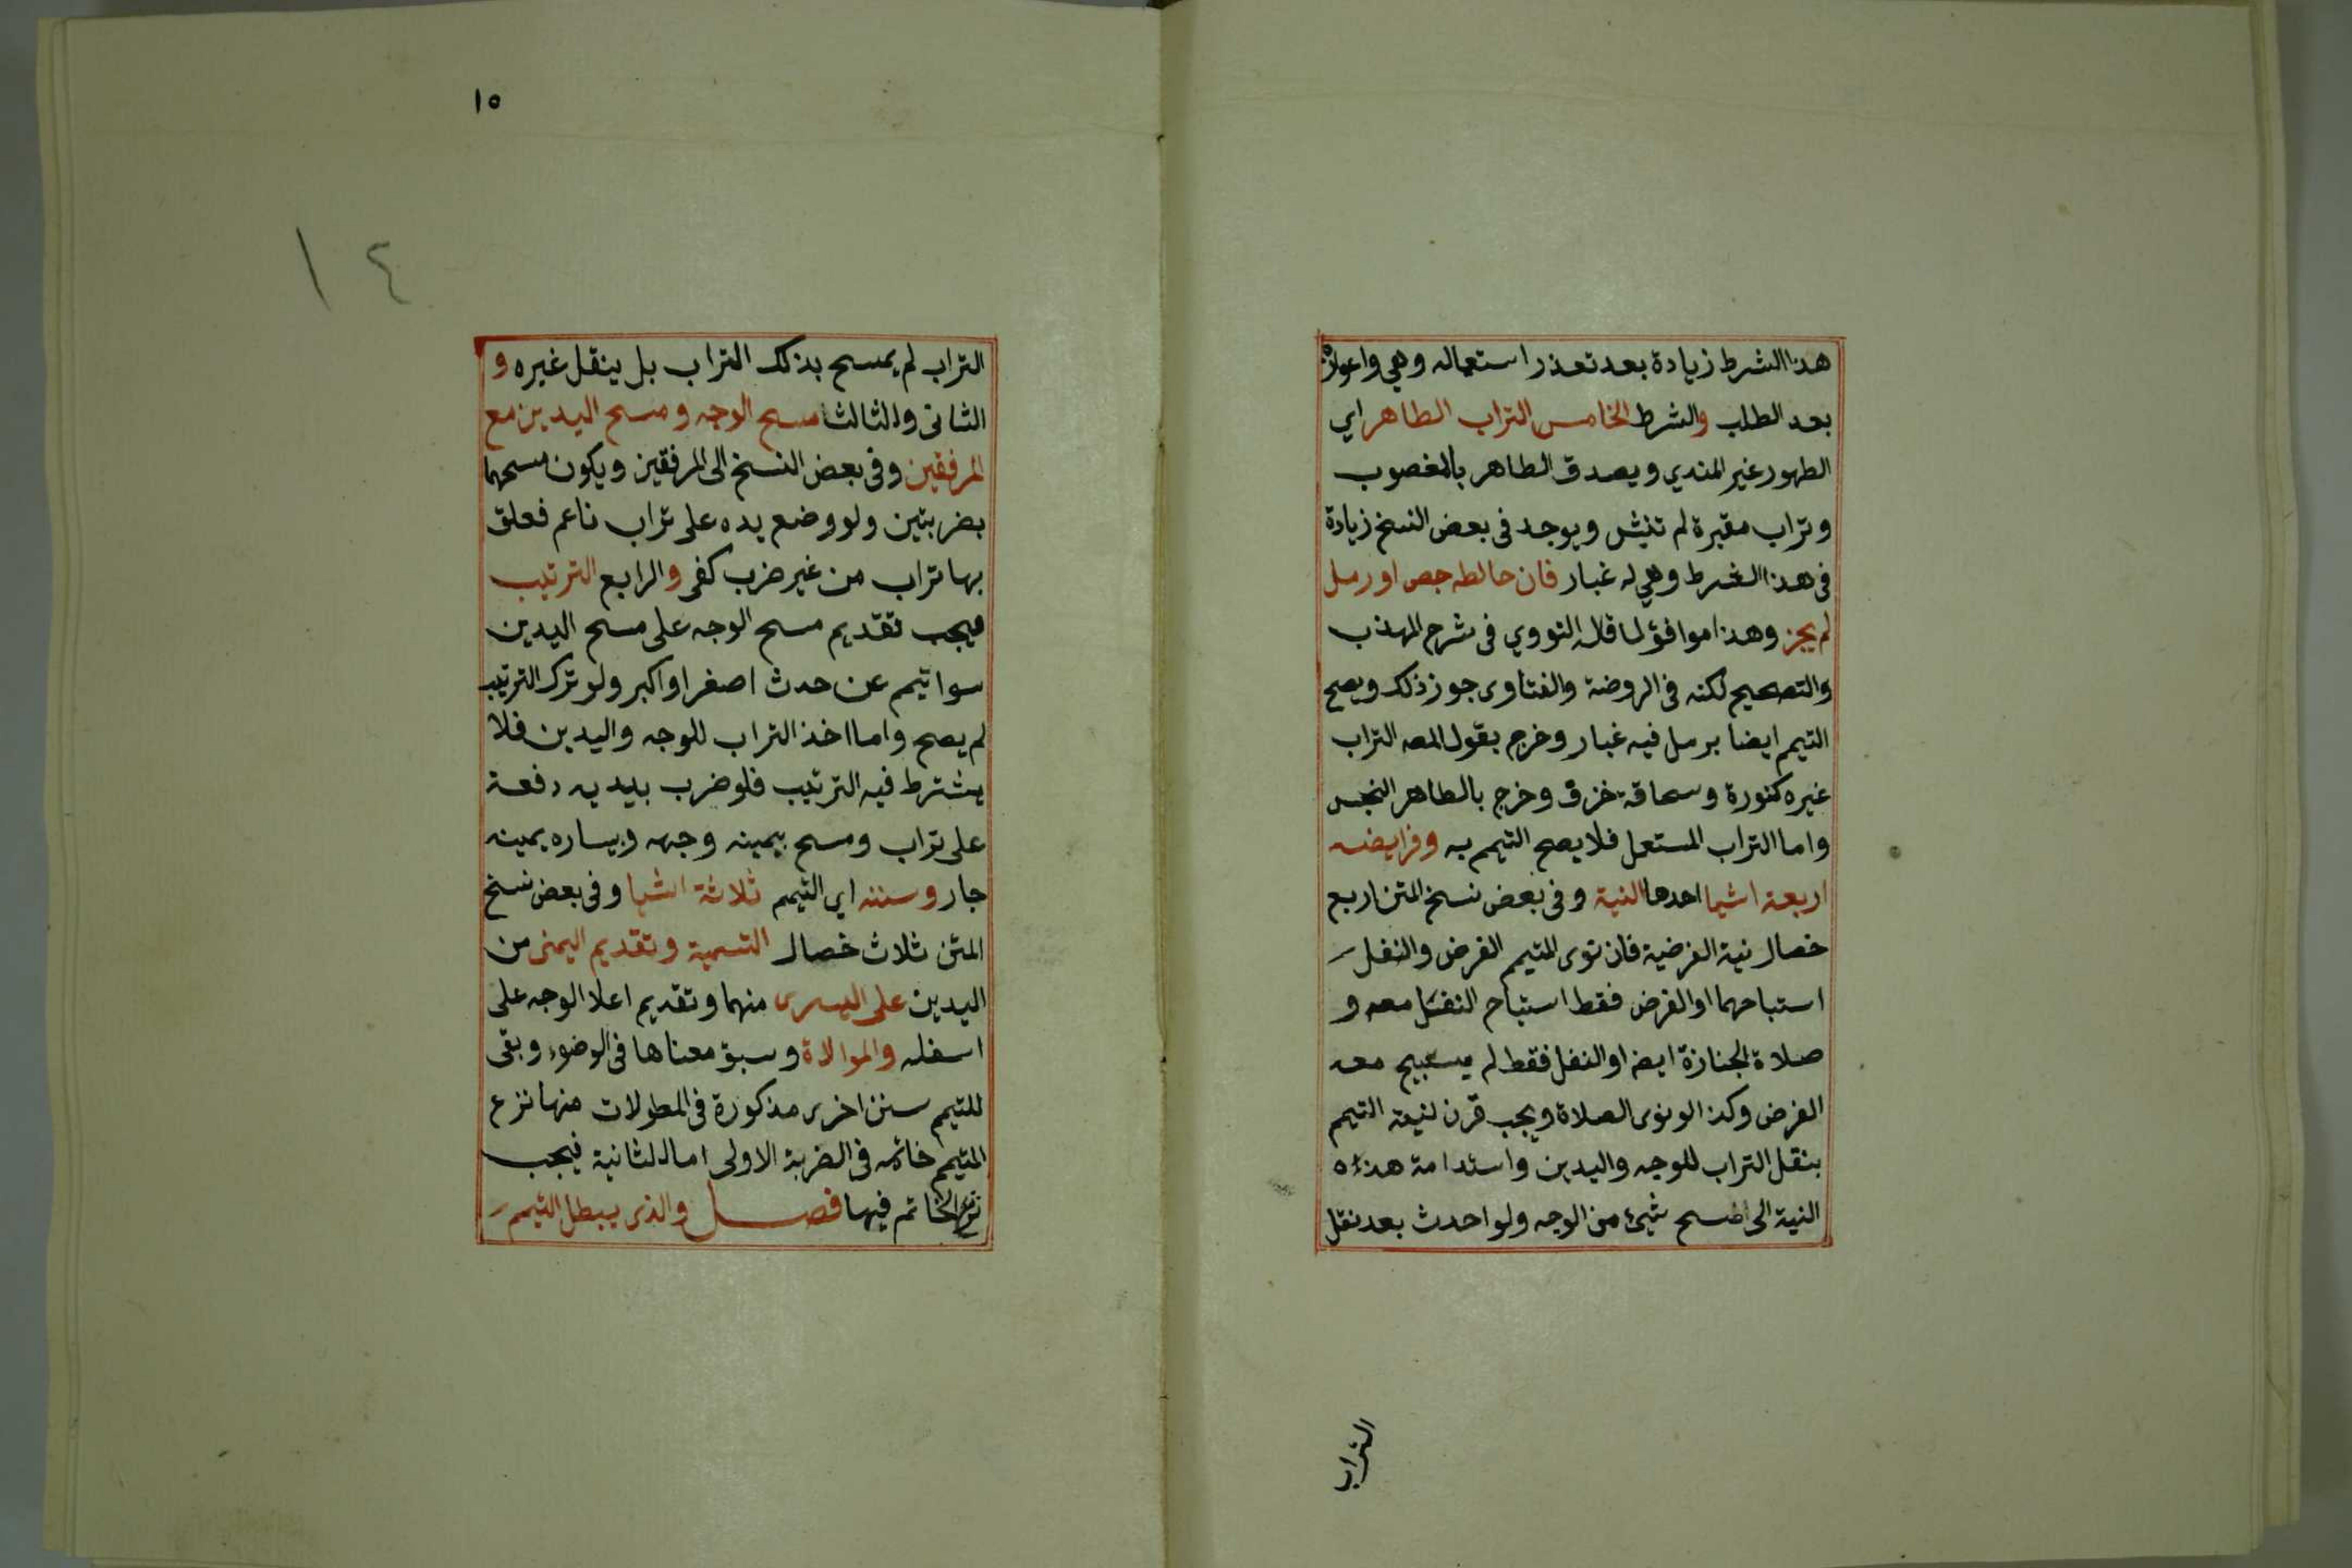 هذا الشرط زيادة بعد تعذر استعماله وهي واعوازه
بعد الطلب والشرط الخامس التراب الطاهر اي
الطهور غير المندي ويصدق الطاهر بالمغصوب
وتراب مقبرة لم تنبش ويوجد فى بعض النسخ زيادة
فى هذا الشرط وهي له غبار فان خالطه جص او رمل
لم يجز وهذا موافق لما قاله النووي فى شرح المهذب
والتصحيح لكنه فى الروضة والفتاوى جوز ذلك ويصح
التيمم ايضا برمل فيه غبار وخرج بقول المصه التراب
غيره كنورة وسحاقة خزف وخرج بالطاهر النجس
واما التراب المستعمل فلا يصح التيمم به وفرايضه
اربعة اشيا احدها النية وفى بعض نسخ المتن اربع
خصال نية الفرضية فان نوى المتيمم الفرض والنفل
استباحهما او الفرض فقط استباح النفل معه و
صلاة الجنازة ايضا او النفل فقط لم يستبيح معه
الفرض وكذا لو نوى الصلاة ويجب قرن نية التيمم
بنقل التراب للوجه واليدين واستدامة هذه
النية الى مسح شيئ من الوجه ولو احدث بعد نقل
التراب
١٥
١٤
التراب لم يمسح بذلك التراب بل ينقل غيره و
الثانى والثالث مسح الوجه ومسح اليدين مع
المرفقين وفى بعض النسخ الى المرفقين ويكون مسحهما
بضربتين ولو وضع يده على تراب ناعم فعلق
بها تراب من غير ضرب كفى والرابع الترتيب
فيجب تقديم مسح الوجه على مسح اليدين
سوا تيمم عن حدث اصغر او اكبر ولو ترك الترتيب
لم يصح واما اخذ التراب للوجه واليدين فلا
يشترط فيه الترتيب فلو ضرب بيديه دفعة
على تراب ومسح بيمينه وجهه وبيساره يمينه
جاز وسننه اي التيمم ثلاثة اشيا وفى بعض نسخ
المتن ثلاث خصال التسمية وتقديم اليمنى من
اليدين على اليسرى منهما وتقديم اعلا الوجه على
اسفله والموالاة وسبق معناها فى الوضوء وبقى
للتيمم سنن اخرى مذكورة فى المطولات منها نزع
المتيمم خاتمه فى الضربة الاولى اما الثانية فيجب
نزع الخاتم فيها فصل والذى يبطل التيمم